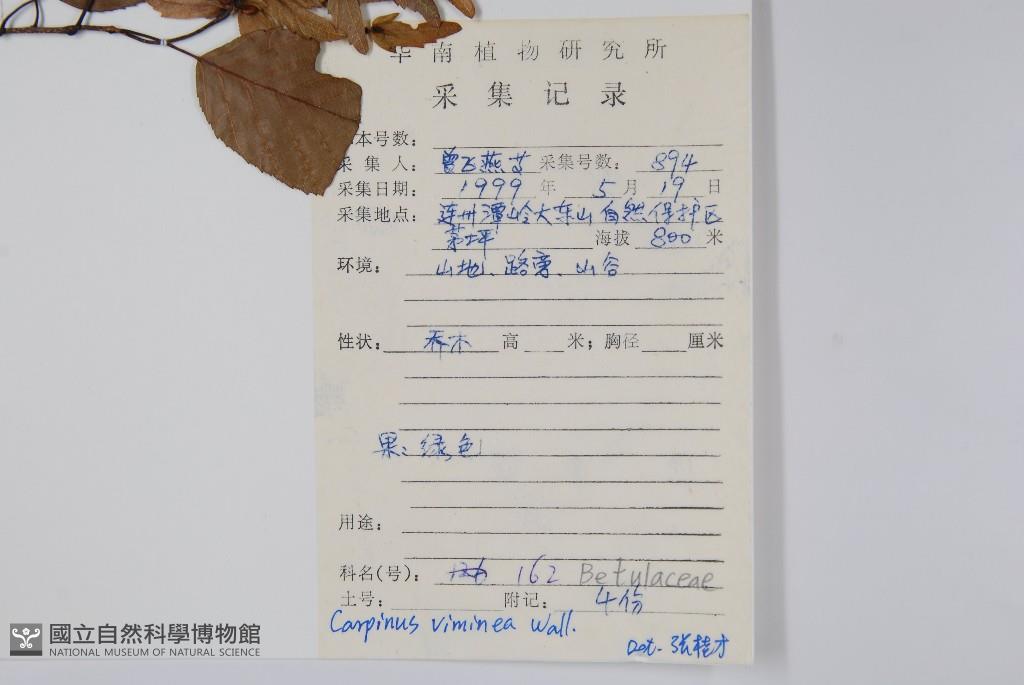 华南植物研究所
采集记录
本号数：
采集人： 曾飞燕 采集号数： 894
采集日期： 1999 年 5 月 19 日
采集地点： 连州潭岭大东山自然保护区
茅坪 海拔 800 米
环境： 山地、路旁、山谷
性状： 乔木 高 米；胸径 厘米
果：绿色
用途：
科名(号)： 162 Betulaceae
土号： 附记： 4份
Carpinus viminea Wall.
Det. 张桂才
國立自然科學博物館
NATIONAL MUSEUM OF NATURAL SCIENCE